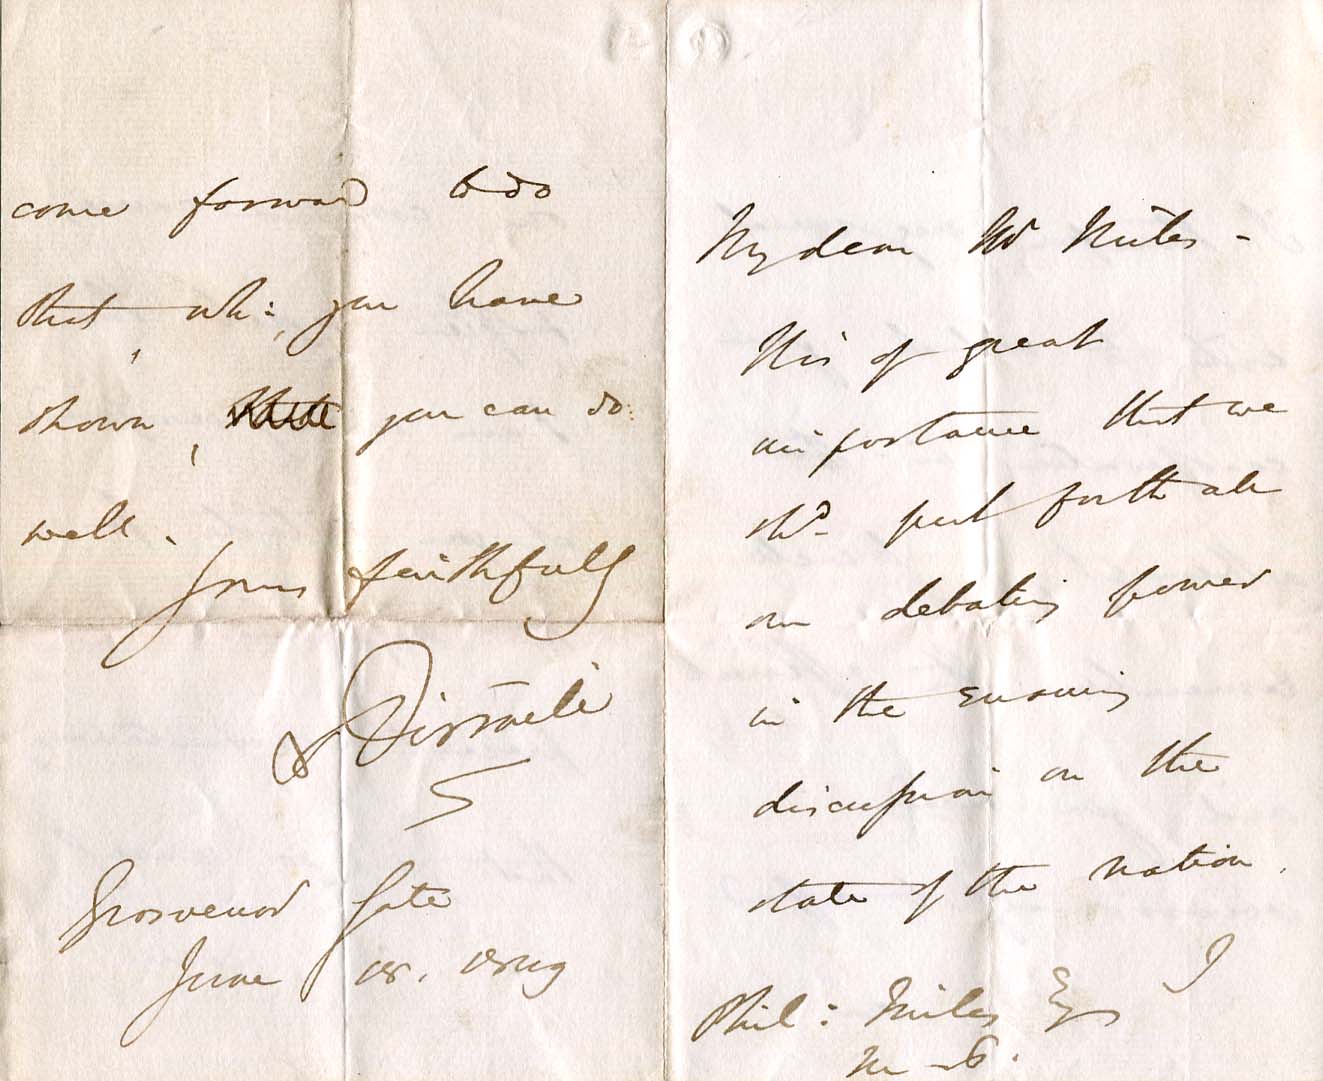 My dear Mr Miles -
Tis of great
importance that we
shd. put forth all
our debating power
in the ensuing
discussion on the
state of the nation.
I
Phil: Miles Esqr
M.P.
come forward to do
that wh:, you have
shown, you can do
well.
Yours faithfully
Disraeli
Grosvenor Gate
June 18. 1849